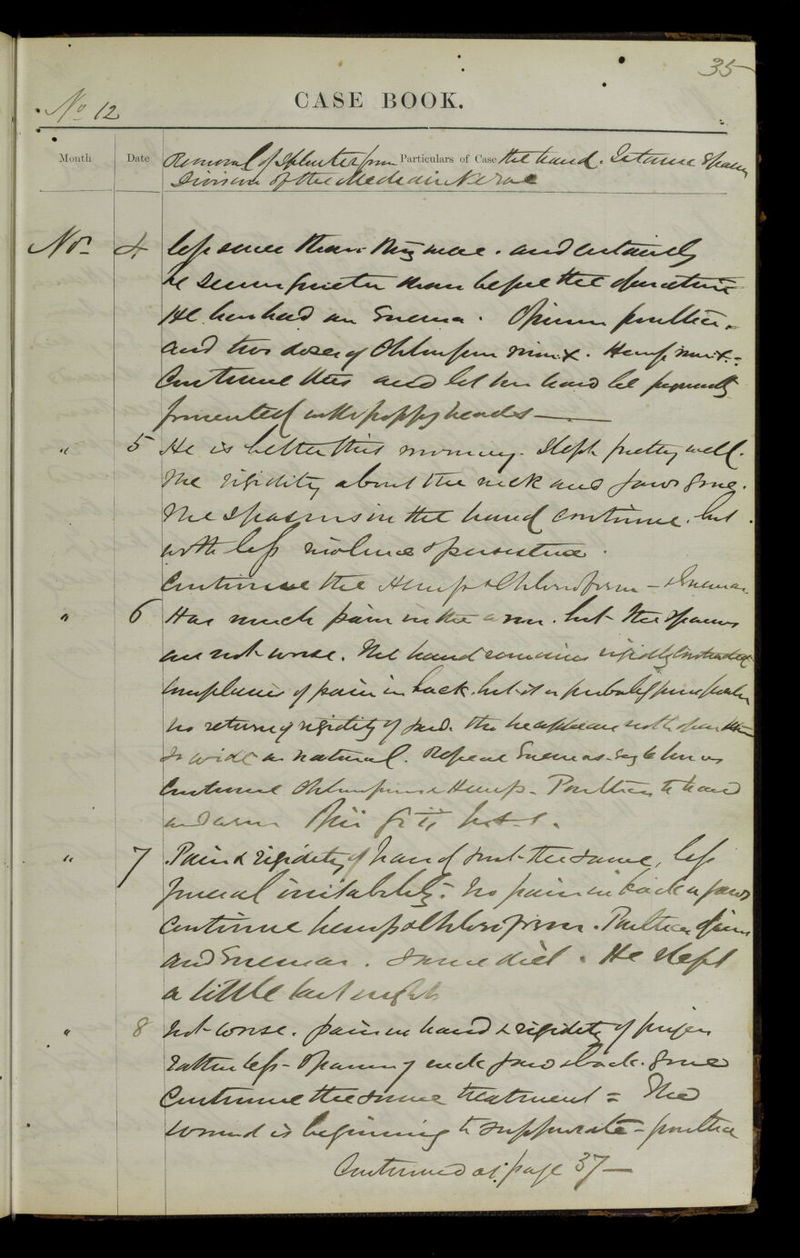 35
No 12
CASE BOOK.
Month Date Particulars of Case
Removal of Splinter from the hand. Tetanic Spasm
Division of the Median Nerve
Nov 4 less since then. and certainly
he seems quieter than before the operation
He has had an Enema. Opium poultice.
and two doses of Chloroform minx. Hemp minx.
Continue this and let the hand be frequently
fomented with poppy heads
" 5 He is better this morning. Slept pretty well.
The rigidity about the neck and jaws gone.
The spasms in the hand continue. but
with less violence & persistence.
Continue the Hemp & Chloroform - & Enemas
" 6 Has much pain in the arm. but the spasms
are not worse. The hand remains rigidly
Complains of pain in back. but it is probably
no return of rigidity of jaw. tho he
so wide as natural. Repeat Enemas
Continue Chloroform & Hemp. Poultices to hand
and arm
" 7 Pain & rigidity of hand the same, less
general irritability. No pain in back or jaws
Continue hemp & Chloroform. Poultices opium
and Enemas. Same diet. He slept
a little last night
" 8 Not worse. pain in hand & rigidity of fingers
rather less - Spasm of neck jaw & back. gone
Continue the same treatment = The
wound is beginning to suppurate - poultice
Continued at page 37